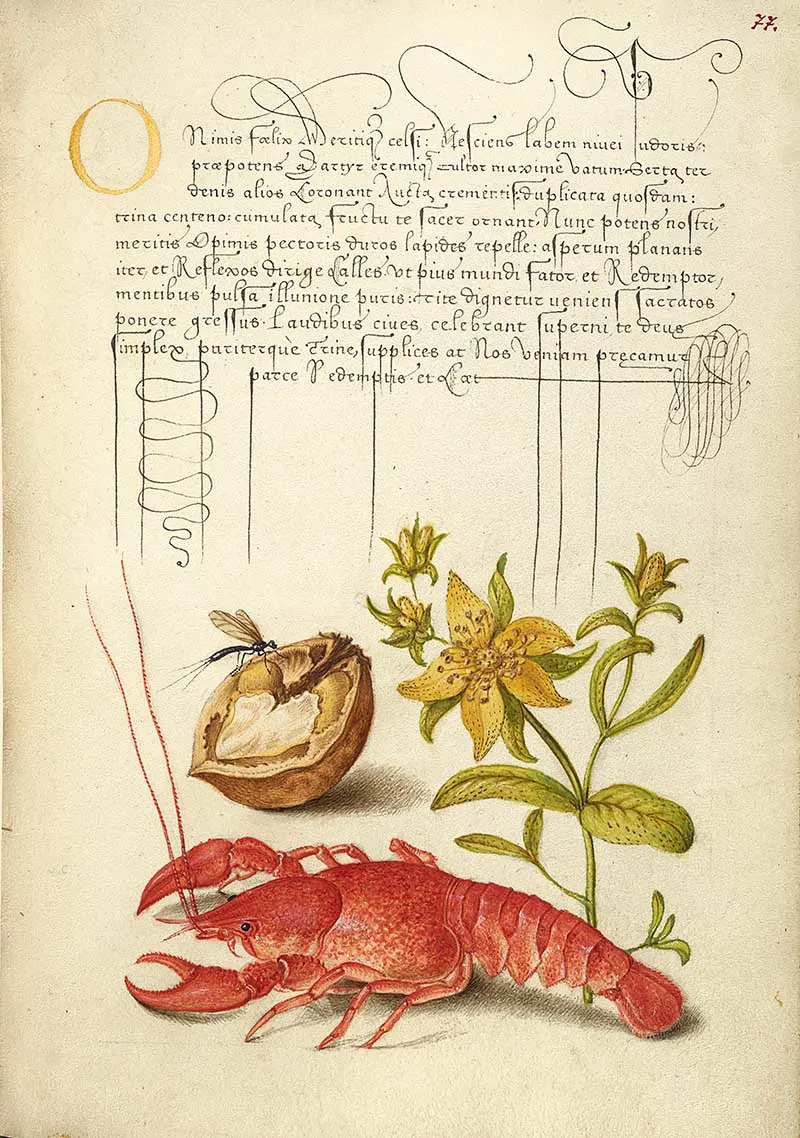 77.
O Nimis fælix Meritiq celsi: Nesciens labem nivei pudoris:
præpotens Martyr eremiq cultor maxime vatum. Serta ter
denis alios Coronant Aucta crementis: duplicata quosdam:
trina centeno: cumulata fructu te sacer ornant. Nunc potens nostri,
meritis Opimis pectoris duros lapides repelle: asperum planans
iter, et Reflexos dirige Calles. Ut pius mundi sator, et Redemptor,
mentibus pulsa illunione puris: rite dignetur veniens sacratos
ponere gressus. Laudibus cives, celebrant superni, te deus
simplex, pariterque trine, supplices ac Nos veniam precamur
parce Redemptis. et Cæt